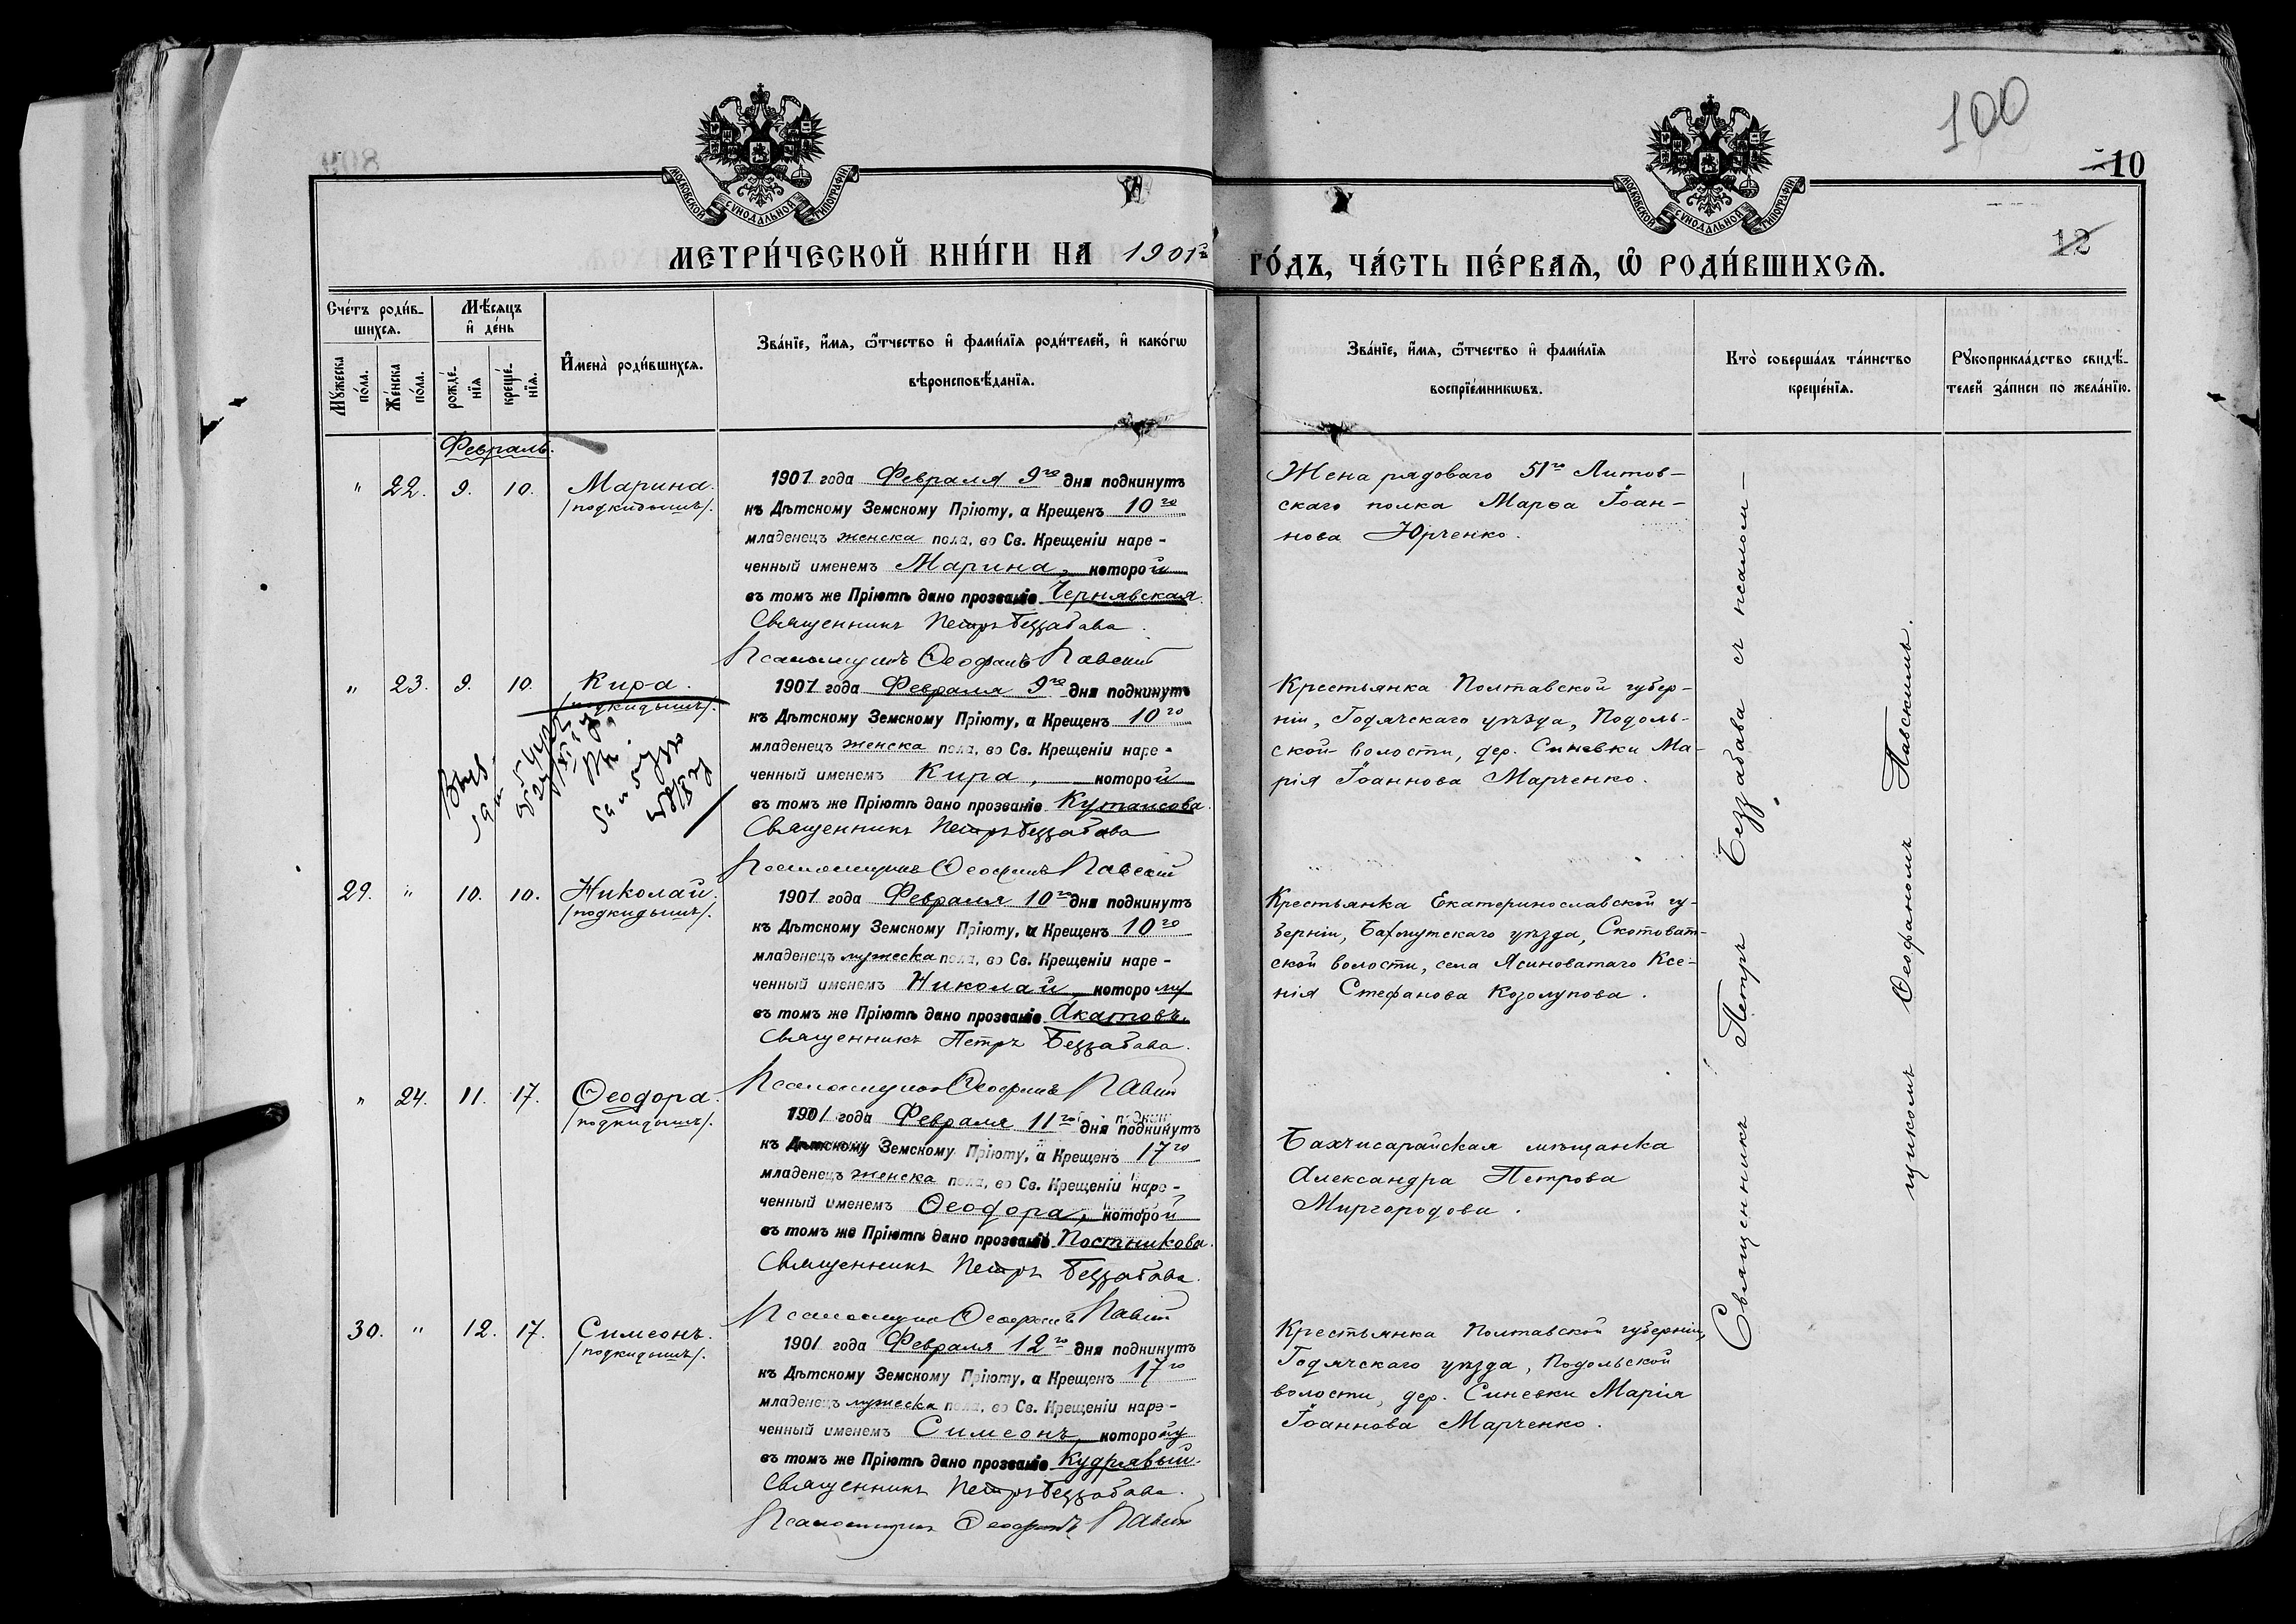 100
10
12
МОСКОВСКОЙ СѴНОДАЛЬНОЙ ТИПОГРАФІИ
МОСКОВСКОЙ СѴНОДАЛЬНОЙ ТИПОГРАФІИ
МЕТРИ́ЧЕСКОЙ КНИ́ГИ НА 1901й
ГО́ДЪ, ЧА́СТЬ ПЕ́РВАѦ, Ѡ҆ РОДИ́ВШИХСѦ.
Сче́тъ роди́в-
шихсѧ.
Мꙋ́жеска по́ла.
Же́нска по́ла.
Мѣ́сѧцъ
и҆ де́нь
рожде́-
нїѧ
креще́-
нїѧ.
И҆мена̀ роди́вшихсѧ.
Зва́нїе, и҆́мѧ, ѻ҆́тчество и҆ фами́лїѧ роди́телей, и҆ како́гѡ
вѣроисповѣ́данїѧ.
Зва́нїе, и҆́мѧ, ѻ҆́тчество и҆ фами́лїѧ
воспрїе́мникѡвъ.
Кто̀ соверша́лъ та́инство
креще́нїѧ.
Рꙋкоприкла́дство свидѣ́-
телей за́писи по жела́нїю.
Февраль.
" 22. 9. 10. Марина.
/подкидышъ/.
1901 года Февраля 9го дня подкинутъ
къ Дѣтскому Земскому Пріюту, а Крещенъ 10го
младенецъ женска пола, во Св. Крещеніи наре-
ченный именемъ Марина, которой
въ томъ же Пріютѣ дано прозваніе Чернявская.
Священникъ Петръ Беззабава.
Псаломщикъ Ѳеофанъ Павскій
Жена рядоваго 51го Литов-
скаго полка Марѳа Іоан-
нова Юрченко.
" 23. 9. 10. Кира.
/подкидышъ/.
1901 года Февраля 9го дня подкинутъ
къ Дѣтскому Земскому Пріюту, а Крещенъ 10го
младенецъ женска пола, во Св. Крещеніи наре-
ченный именемъ Кира, которой
въ томъ же Пріютѣ дано прозваніе Кутаисова.
Священникъ Петръ Беззабава
Псаломщикъ Ѳеофанъ Павскій
Крестьянка Полтавской губер-
ніи, Годячскаго уѣзда, Подоль-
ской волости, дер. Синевки Ма-
рія Іоаннова Марченко.
29. " 10. 10. Николай.
/подкидышъ/.
1901 года Февраля 10го дня подкинутъ
къ Дѣтскому Земскому Пріюту, а Крещенъ 10го
младенецъ мужеска пола, во Св. Крещеніи наре-
ченный именемъ Николай, которому
въ томъ же Пріютѣ дано прозваніе Акатовъ.
Священникъ Петръ Беззабава.
Псаломщикъ Ѳеофанъ Павскій
Крестьянка Екатеринославской гу-
берніи, Бахмутскаго уѣзда, Скотоват-
ской волости, села Ясиноватаго Ксе-
нія Стефанова Козолупова.
" 24. 11. 17. Ѳеодора.
/подкидышъ/.
1901 года Февраля 11го дня подкинутъ
къ Дѣтскому Земскому Пріюту, а Крещенъ 17го
младенецъ женска пола, во Св. Крещеніи наре-
ченный именемъ Ѳеодора, которой
въ томъ же Пріютѣ дано прозваніе Постникова.
Священникъ Петръ Беззабава.
Псаломщикъ Ѳеофанъ Павскій
Бахчисарайская мѣщанка
Александра Петрова
Миргородова.
30. " 12. 17. Симеонъ.
/подкидышъ/.
1901 года Февраля 12го дня подкинутъ
къ Дѣтскому Земскому Пріюту, а Крещенъ 17го
младенецъ мужеска пола, во Св. Крещеніи наре-
ченный именемъ Симеонъ, которому
въ томъ же Пріютѣ дано прозваніе Кудрявый.
Священникъ Петръ Беззабава.
Псаломщикъ Ѳеофанъ Павскій
Крестьянка Полтавской губерніи,
Годячскаго уѣзда, Подольской
волости, дер. Синевки Марія
Іоаннова Марченко.
Священникъ Петръ Беззабава съ псалом-
щикомъ Ѳеофаномъ Павскимъ.